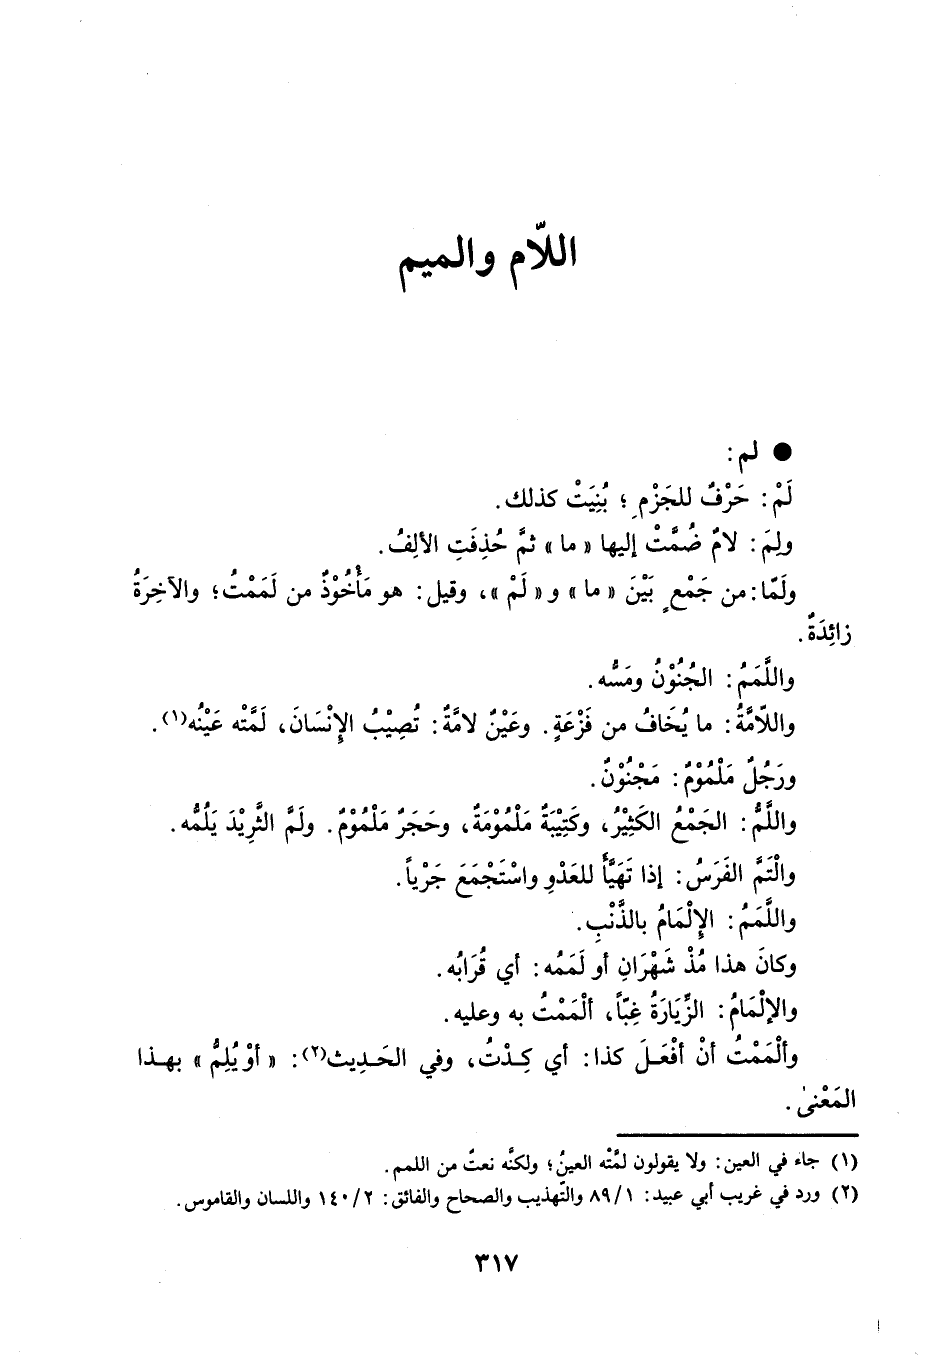 اللّام والميم
● لم:
لَمْ: حَرْفٌ للجَزْمِ؛ بُنِيَتْ كذلك.
ولِمَ: لامٌ ضُمَّتْ إليها « ما » ثمَّ حُذِفَتِ الألِفُ.
ولَمّا: من جَمْعٍ بَيْنَ « ما » و « لَمْ »، وقيل: هو مَأْخُوْذٌ من لَمَمْتُ؛ والآخِرَةُ
زائِدَةٌ.
واللَّمَمُ: الجُنُوْنُ ومَسُّه.
واللّامَّةُ: ما يُخَافُ من فَزْعَةٍ. وعَيْنٌ لامَّةٌ: تُصِيْبُ الإِنْسَانَ، لَمَّتْه عَيْنُه(١).
ورَجُلٌ مَلْمُوْمٌ: مَجْنُوْنٌ.
واللَّمُّ: الجَمْعُ الكَثِيْرُ، وكَتِيْبَةٌ مَلْمُوْمَةٌ، وحَجَرٌ مَلْمُوْمٌ. ولَمَّ الثَّرِيْدَ يَلُمُّه.
والْتَمَّ الفَرَسُ: إذا تَهَيَّأَ للعَدْوِ واسْتَجْمَعَ جَرْياً.
واللَّمَمُ: الإِلْمَامُ بالذَّنْبِ.
وكانَ هذا مُذْ شَهْرَانِ أو لَمَمُه: أي قُرَابُه.
والإلْمَامُ: الزِّيَارَةُ غِبّاً، ألْمَمْتُ به وعليه.
وألْمَمْتُ أنْ أفْعَلَ كذا: أي كِدْتُ، وفي الحَدِيث(٢): « أوْ يُلِمُّ » بهذا
المَعْنىٰ.
(١) جاء في العين: ولا يقولون لمَّتْه العينُ؛ ولكنَّه نعتٌ من اللمم.
(٢) ورد في غريب أبي عبيد: ٨٩/١ والتّهذيب والصحاح والفائق: ١٤٠/٢ واللسان والقاموس.
٣١٧